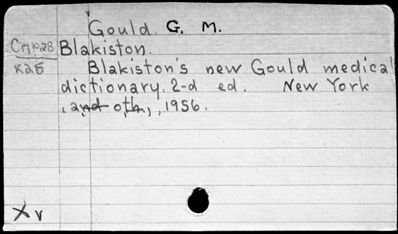 Gould G. M.
Blakiston.
Blakiston's new Gould medical
dictionary. 2-d ed. New York
, and oth., 1956.
K26
X v